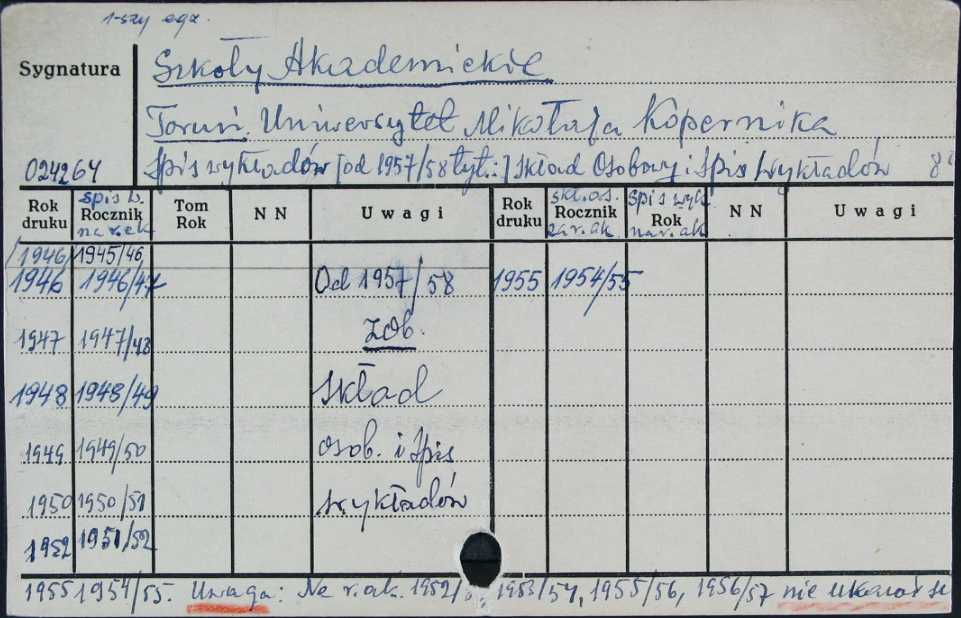 1-szy egz.
Sygnatura Szkoły Akademickie
Toruń. Uniwersytet Mikołaja Kopernika
024264 Spis wykładów [od 1957/58 tyt.:] Skład Osobowy i Spis Wykładów 8°
Rok druku spis w. Rocznik na r. ak Tom Rok NN Uwagi Rok druku skł. os. Rocznik za r. ak. Spis wykł. Rok na r. ak NN Uwagi
/1946/ 1945/46
1946 1946/47 Od 1957/58 1955 1954/55
1947 1947/48 zob.
1948 1948/49 Skład
1949 1949/50 osob. i Spis
1950 1950/51 wykładów
1952 1951/52
1955 1954/55. Uwaga: Na r. ak. 1952/ 1953/54, 1955/56, 1956/57 nie ukazał się